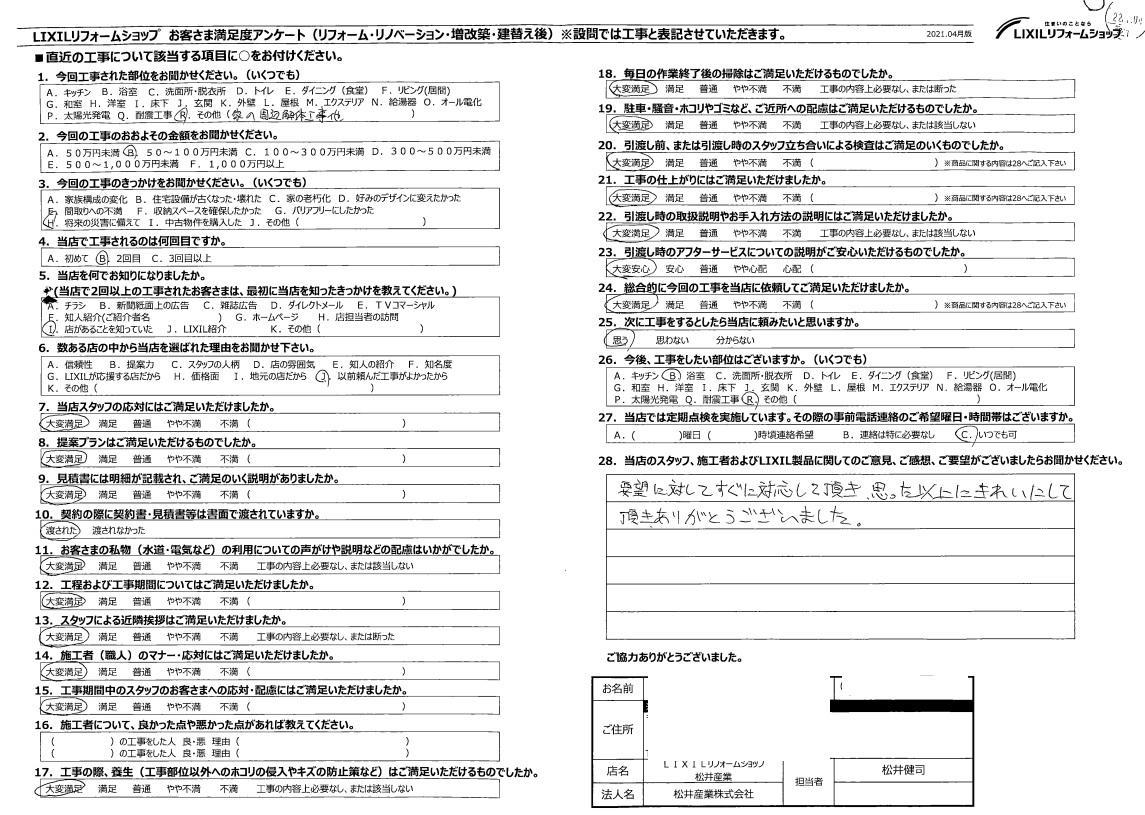 LIXILリフォームショップ お客さま満足度アンケート（リフォーム・リノベーション・増改築・建替え後）※設問では工事と表記させていただきます。
2021.04月版
住まいのことなら
LIXILリフォームショップ
■直近の工事について該当する項目に○をお付けください。
1．今回工事された部位をお聞かせください。（いくつでも）
A．キッチン B．浴室 C．洗面所・脱衣所 D．トイレ E．ダイニング（食堂） F．リビング(居間)
G．和室 H．洋室 I．床下 J．玄関 K．外壁 L．屋根 M．エクステリア N．給湯器 O．オール電化
P．太陽光発電 Q．耐震工事 R．その他（家の周辺解体工事他 ）
2．今回の工事のおおよその金額をお聞かせください。
A．50万円未満 B．50～100万円未満 C．100～300万円未満 D．300～500万円未満
E．500～1,000万円未満 F．1,000万円以上
3．今回の工事のきっかけをお聞かせください。（いくつでも）
A．家族構成の変化 B．住宅設備が古くなった・壊れた C．家の老朽化 D．好みのデザインに変えたかった
E．間取りへの不満 F．収納スペースを確保したかった G．バリアフリーにしたかった
H．将来の災害に備えて I．中古物件を購入した J．その他（ ）
4．当店で工事されるのは何回目ですか。
A．初めて B．2回目 C．3回目以上
5．当店を何でお知りになりましたか。
(当店で2回以上の工事されたお客さまは、最初に当店を知ったきっかけを教えてください。)
A．チラシ B．新聞紙面上の広告 C．雑誌広告 D．ダイレクトメール E．TVコマーシャル
F．知人紹介(ご紹介者名 ) G．ホームページ H．店担当者の訪問
I．店があることを知っていた J．LIXIL紹介 K．その他（ ）
6．数ある店の中から当店を選ばれた理由をお聞かせ下さい。
A．信頼性 B．提案力 C．スタッフの人柄 D．店の雰囲気 E．知人の紹介 F．知名度
G．LIXILが応援する店だから H．価格面 I．地元の店だから J．以前頼んだ工事がよかったから
K．その他（ ）
7．当店スタッフの応対にはご満足いただけましたか。
大変満足 満足 普通 やや不満 不満（ ）
8．提案プランはご満足いただけるものでしたか。
大変満足 満足 普通 やや不満 不満（ ）
9．見積書には明細が記載され、ご満足のいく説明がありましたか。
大変満足 満足 普通 やや不満 不満（ ）
10．契約の際に契約書・見積書等は書面で渡されていますか。
渡された 渡されなかった
11．お客さまの私物（水道・電気など）の利用についての声がけや説明などの配慮はいかがでしたか。
大変満足 満足 普通 やや不満 不満 工事の内容上必要なし、または該当しない
12．工程および工事期間についてはご満足いただけましたか。
大変満足 満足 普通 やや不満 不満（ ）
13．スタッフによる近隣挨拶はご満足いただけましたか。
大変満足 満足 普通 やや不満 不満 工事の内容上必要なし、または断った
14．施工者（職人）のマナー・応対にはご満足いただけましたか。
大変満足 満足 普通 やや不満 不満（ ）
15．工事期間中のスタッフのお客さまへの応対・配慮にはご満足いただけましたか。
大変満足 満足 普通 やや不満 不満（ ）
16．施工者について、良かった点や悪かった点があれば教えてください。
（ ）の工事をした人 良・悪 理由（ ）
（ ）の工事をした人 良・悪 理由（ ）
17．工事の際、養生（工事部位以外へのホコリの侵入やキズの防止策など）はご満足いただけるものでしたか。
大変満足 満足 普通 やや不満 不満 工事の内容上必要なし、または該当しない
18．毎日の作業終了後の掃除はご満足いただけるものでしたか。
大変満足 満足 普通 やや不満 不満 工事の内容上必要なし、または断った
19．駐車・騒音・ホコリやゴミなど、ご近所への配慮はご満足いただけるものでしたか。
大変満足 満足 普通 やや不満 不満 工事の内容上必要なし、または該当しない
20．引渡し前、または引渡し時のスタッフ立ち合いによる検査はご満足のいくものでしたか。
大変満足 満足 普通 やや不満 不満（ ）※商品に関する内容は28へご記入下さい
21．工事の仕上がりにはご満足いただけましたか。
大変満足 満足 普通 やや不満 不満（ ）※商品に関する内容は28へご記入下さい
22．引渡し時の取扱説明やお手入れ方法の説明にはご満足いただけましたか。
大変満足 満足 普通 やや不満 不満 工事の内容上必要なし、または該当しない
23．引渡し時のアフターサービスについての説明がご安心いただけるものでしたか。
大変安心 安心 普通 やや心配 心配（ ）
24．総合的に今回の工事を当店に依頼してご満足いただけましたか。
大変満足 満足 普通 やや不満 不満（ ）※商品に関する内容は28へご記入下さい
25．次に工事をするとしたら当店に頼みたいと思いますか。
思う 思わない 分からない
26．今後、工事をしたい部位はございますか。（いくつでも）
A．キッチン B．浴室 C．洗面所・脱衣所 D．トイレ E．ダイニング（食堂） F．リビング(居間)
G．和室 H．洋室 I．床下 J．玄関 K．外壁 L．屋根 M．エクステリア N．給湯器 O．オール電化
P．太陽光発電 Q．耐震工事 R．その他（ ）
27．当店では定期点検を実施しています。その際の事前電話連絡のご希望曜日・時間帯はございますか。
A．（ ）曜日（ ）時頃連絡希望 B．連絡は特に必要なし C．いつでも可
28．当店のスタッフ、施工者およびLIXIL製品に関してのご意見、ご感想、ご要望がございましたらお聞かせください。
要望に対してすぐに対応して頂き、思った以上にきれいにして
頂きありがとうございました。
ご協力ありがとうございました。
お名前
ご住所
店名 LIXILリフォームショップ 松井産業 担当者 松井健司
法人名 松井産業株式会社